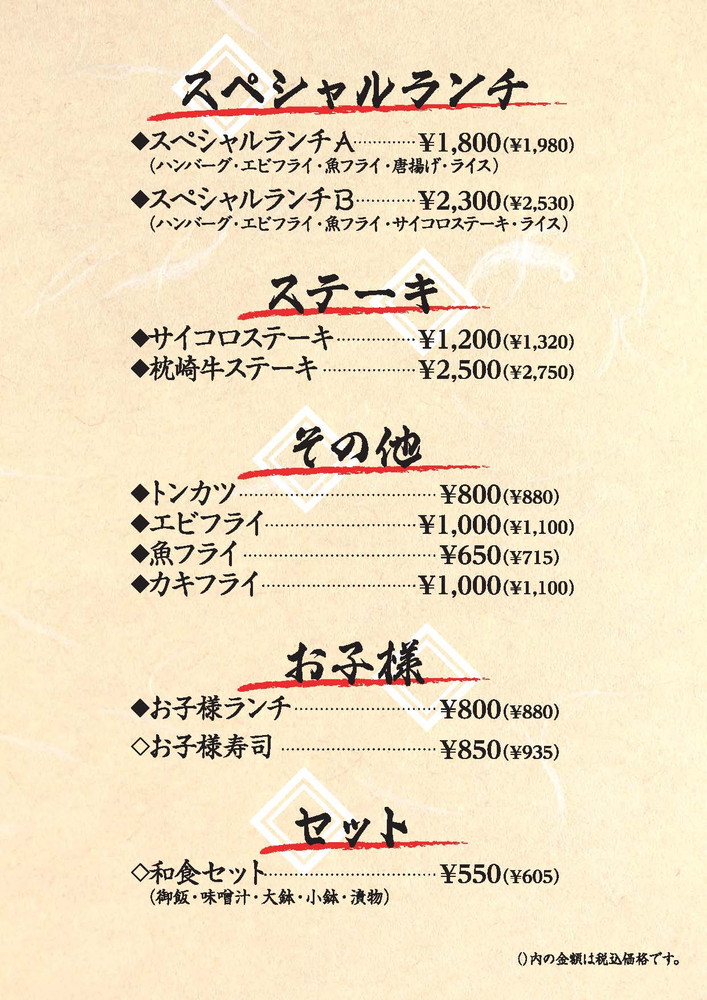 スペシャルランチ
◆スペシャルランチA…………¥1,800(¥1,980)
(ハンバーグ・エビフライ・魚フライ・唐揚げ・ライス)
◆スペシャルランチB…………¥2,300(¥2,530)
(ハンバーグ・エビフライ・魚フライ・サイコロステーキ・ライス)
ステーキ
◆サイコロステーキ……………¥1,200(¥1,320)
◆枕崎牛ステーキ………………¥2,500(¥2,750)
その他
◆トンカツ………………………………¥800(¥880)
◆エビフライ…………………………¥1,000(¥1,100)
◆魚フライ………………………………¥650(¥715)
◆カキフライ…………………………¥1,000(¥1,100)
お子様
◆お子様ランチ………………………¥800(¥880)
◇お子様寿司…………………………¥850(¥935)
セット
◇和食セット…………………………¥550(¥605)
(御飯・味噌汁・大鉢・小鉢・漬物)
()内の金額は税込価格です。